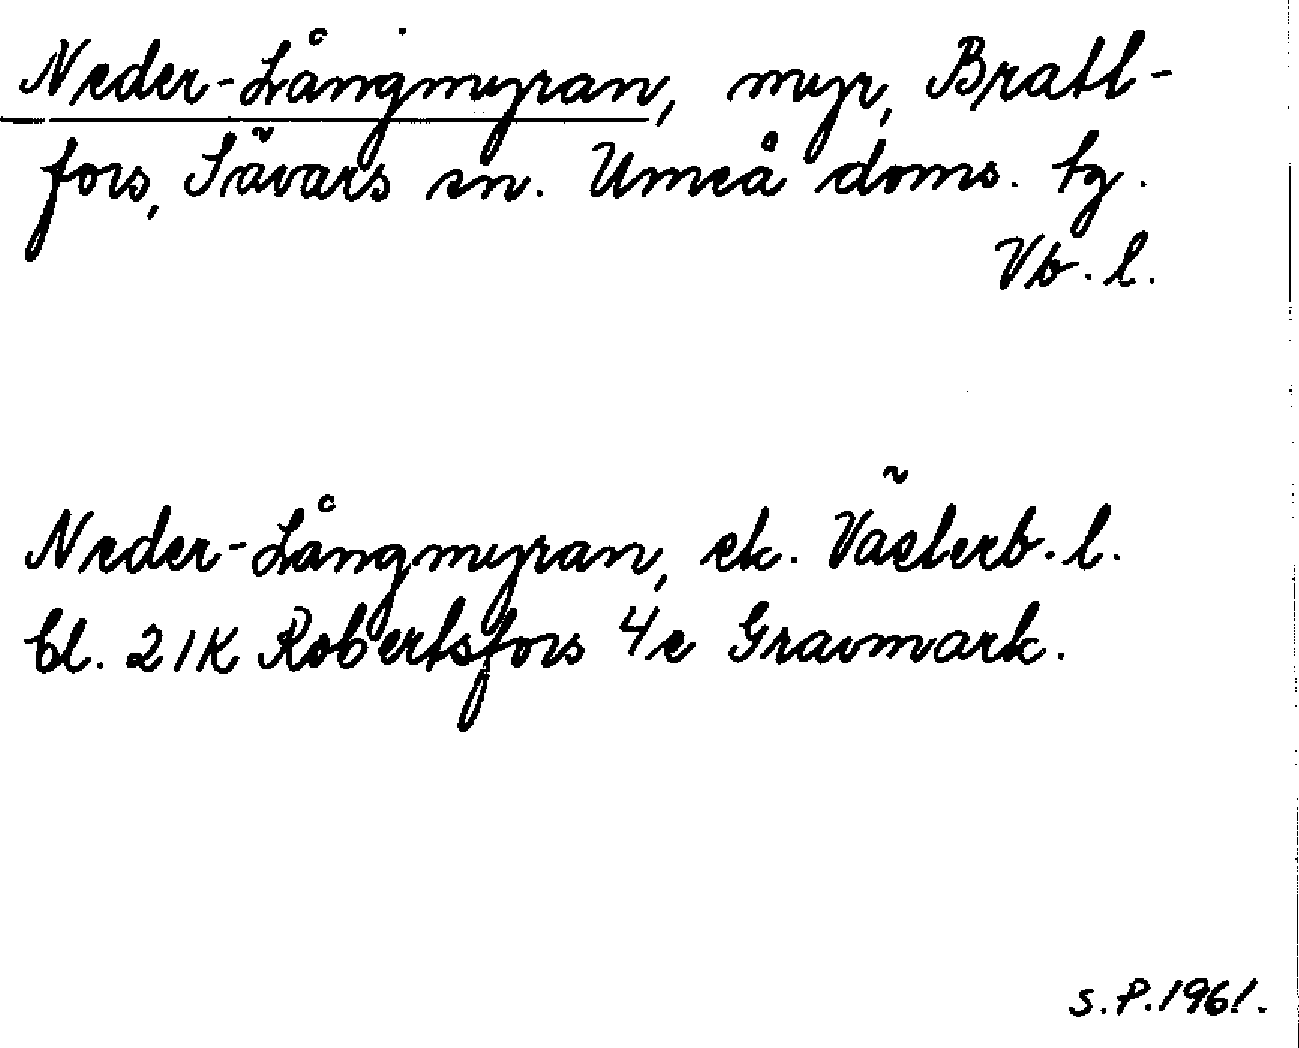 Neder-Långmyran, myr, Bratt-
fors, Sävars sn. Umeå doms. tg.
Vb. l.
Neder-Långmyran, ek. Västerb. l.
bl. 21K Robertsfors 4e Gravmark.
S. P. 1961.